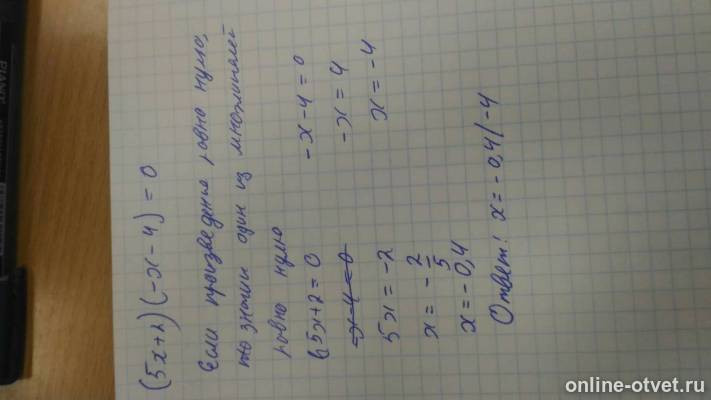 (5x+2)(-x-4)=0
Если произведение равно нулю,
то значит один из множителей
равно нулю
5x+2=0 -x-4=0
-x-4=0 -x=4
5x=-2 x=-4
x=-2/5
x=-0,4
Ответ: x=-0,4/-4
online-otvet.ru